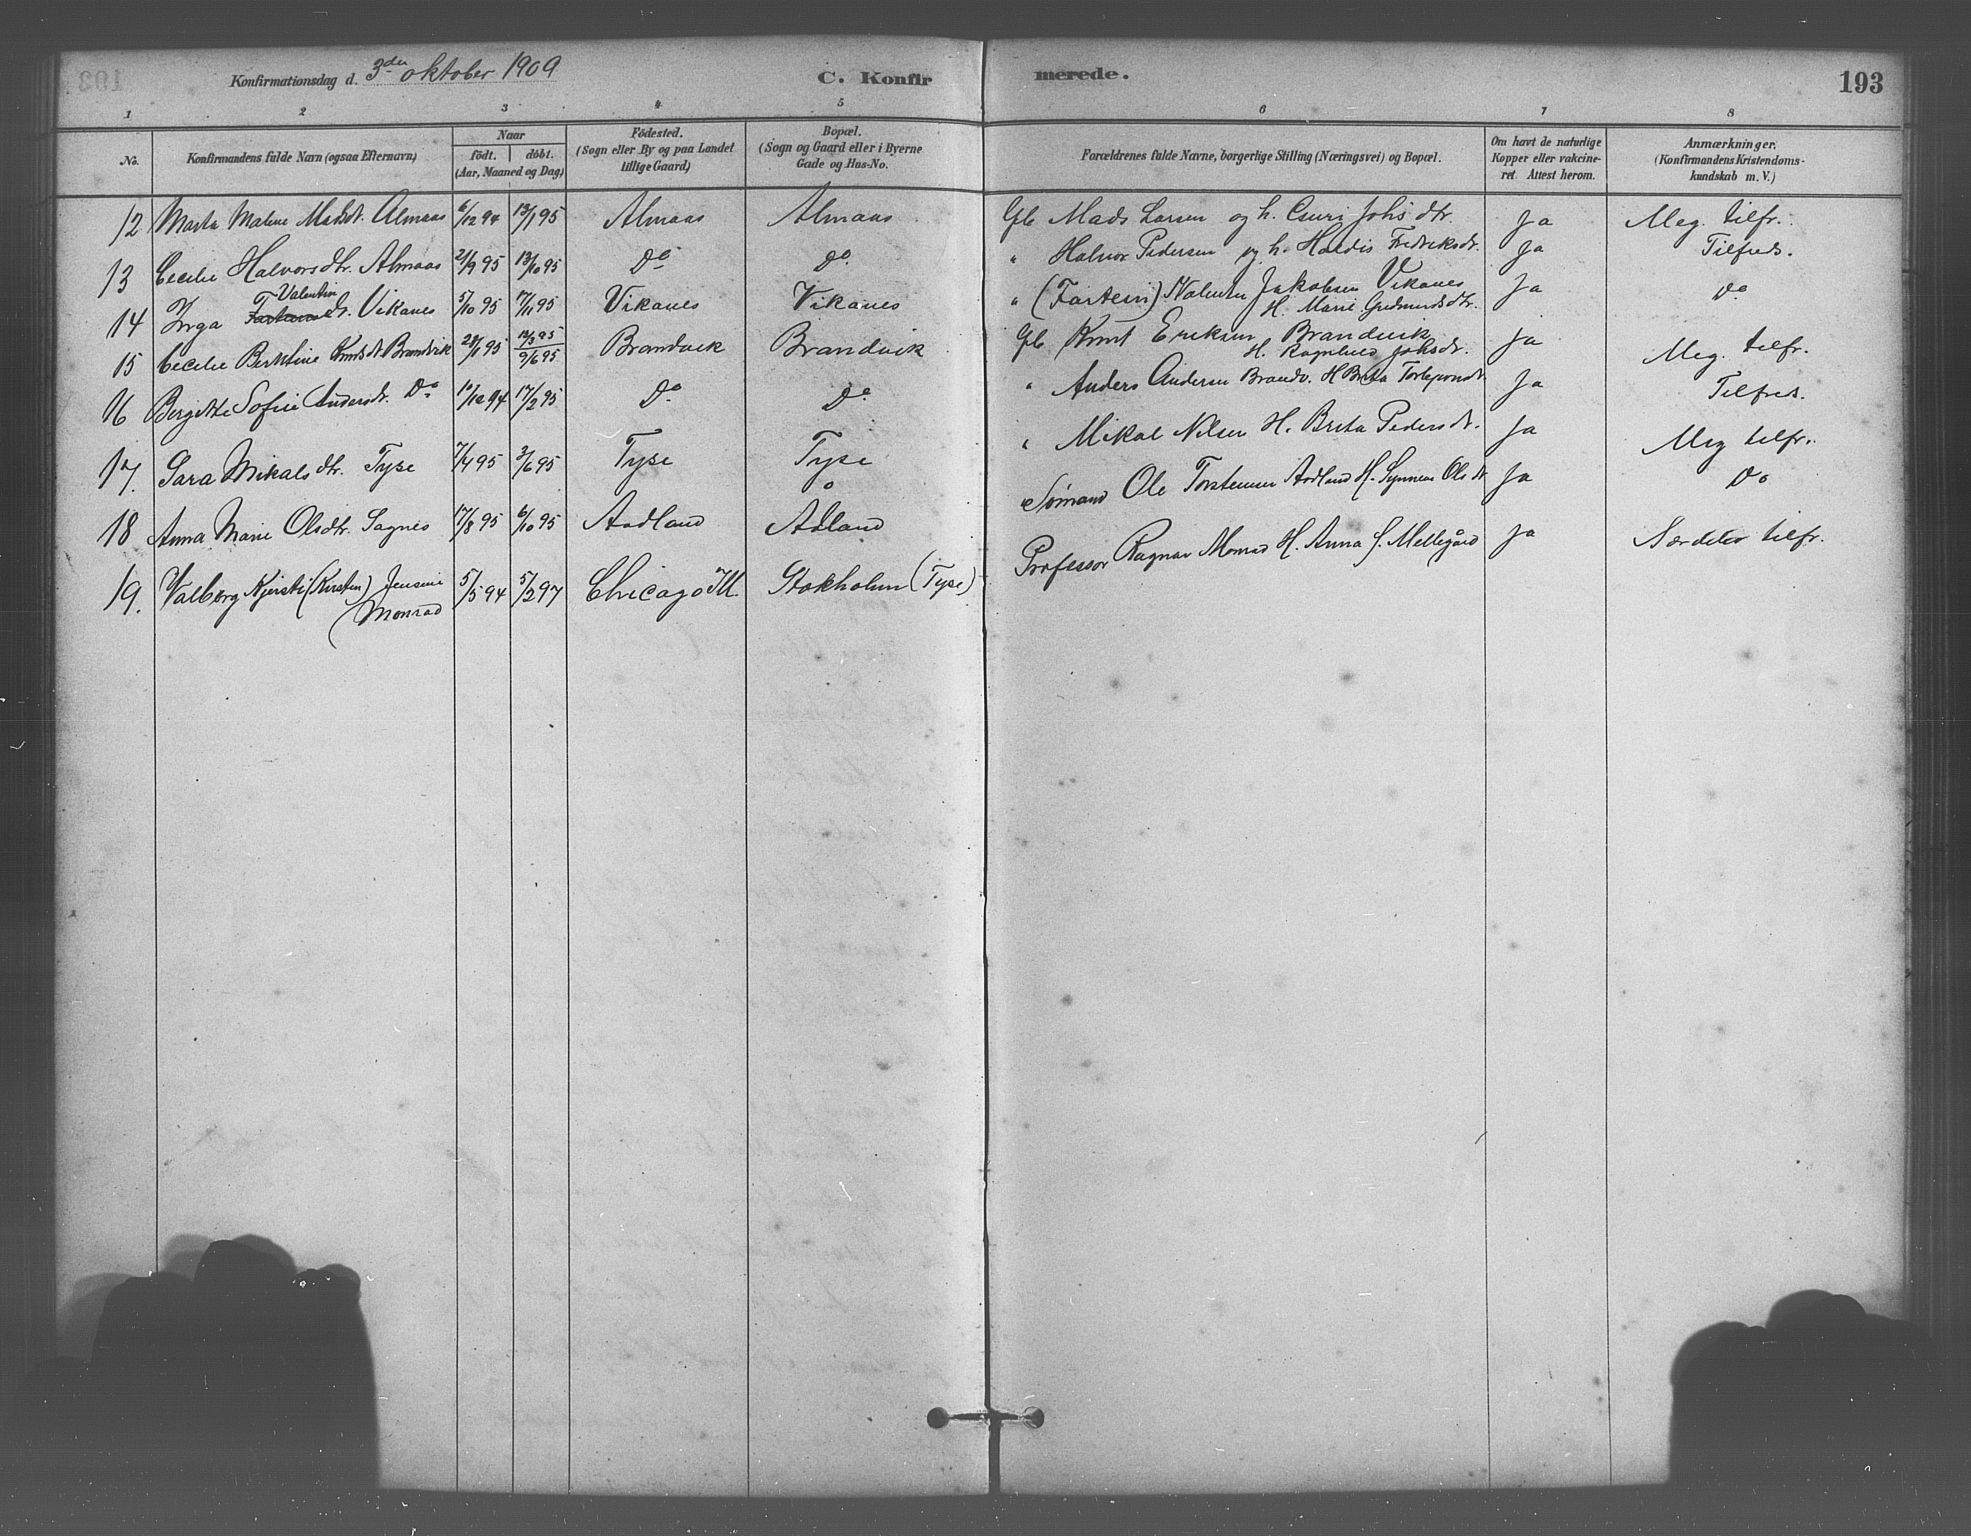 Konfirmationsdag d. 3die oktober 1909 C. Konfirmerede. 193
1 2 3 4 5 6 7 8
No. Konfirmandens fulde Navn (ogsaa Efternavn) Naar födt. döbt. (Aar, Maaned og Dag) Födested. (Sogn eller By og paa Landet tillige Gaard) Bopæl. (Sogn og Gaard eller i Byerne Gade og Hus-No.) Forældrenes fulde Navne, borgerlige Stilling (Næringsvei) og Bopæl. Om havt de naturlige Kopper eller vakcineret. Attest herom. Anmærkninger. (Konfirmandens Kristendomskundskab m. V.)
12 Marta Malene Madsdt. Almaas 6/12 94 13/1 95 Almaas Almaas Gb Mads Larsen og h. Guri Johsdtr. Ja Meg. tilfr.
13 Cecilie Halvorsdtr. Almaas 21/9 95 13/10 95 Do Do. " Halvor Pedersen og h. Haldis Fredriksdr. Ja Tilfreds.
14 Inga Valentindr. Vikanes 5/10 95 17/11 95 Vikanes Vikanes " (Fartein) Valentin Jakobsen Vikanes H. Marie Gudmundsdtr. Ja Do
15 Cecilie Berntine Knutsdt Brandvik 28/1 95 12/3 95 9/6 95 Brandvik Brandvik Gb Knut Eriksen Brandvik H. Ragnhild Johsdr. Ja Meg. tilfr.
16 Bergitte Sofie Andersdt. Do 10/12 94 17/2 95 Do Do " Anders Andersen Brandv. H Brita Torbjørnsdt. Ja Tilfreds.
17. Sara Mikalsdtr. Tyse 7/4 95 3/6 95 Tyse Tyse " Mikal Nilsen H. Brita Pedersdt. Ja Meg tilfr.
18 Anna Marie Olsdtr. Sagnes 17/8 95 6/10 95 Aadland Ådland Sømand Ole Torsteinsen Aadland H. Synneva Olsdt Ja Do
19. Valborg Kjersti (Kirsten) Jensine Monrad 5/5 94 5/2 97 Chicago Ill. Stokholm (Tyse) Professor Ragnar Monrad H. Anna f. Mellegård Ja Særdeles tilfr.